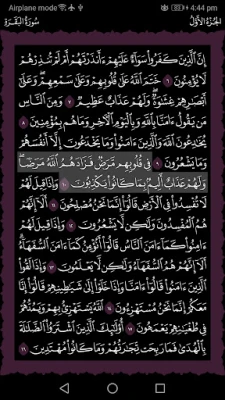 Airplane mode 4:44 pm
سُورَةُ البَقَرَةِ الجُزْءُ الأَوَّلُ
إِنَّ ٱلَّذِينَ كَفَرُوا۟ سَوَآءٌ عَلَيْهِمْ ءَأَنذَرْتَهُمْ أَمْ لَمْ تُنذِرْهُمْ
لَا يُؤْمِنُونَ ٦ خَتَمَ ٱللَّهُ عَلَىٰ قُلُوبِهِمْ وَعَلَىٰ سَمْعِهِمْ وَعَلَىٰٓ
أَبْصَٰرِهِمْ غِشَٰوَةٌ وَلَهُمْ عَذَابٌ عَظِيمٌ ٧ وَمِنَ ٱلنَّاسِ
مَن يَقُولُ ءَامَنَّا بِٱللَّهِ وَبِٱلْيَوْمِ ٱلْءَاخِرِ وَمَا هُم بِمُؤْمِنِينَ ٨
يُخَٰدِعُونَ ٱللَّهَ وَٱلَّذِينَ ءَامَنُوا۟ وَمَا يَخْدَعُونَ إِلَّآ أَنفُسَهُمْ
وَمَا يَشْعُرُونَ ٩ فِى قُلُوبِهِم مَّرَضٌ فَزَادَهُمُ ٱللَّهُ مَرَضًا ۖ
وَلَهُمْ عَذَابٌ أَلِيمٌۢ بِمَا كَانُوا۟ يَكْذِبُونَ ١٠ وَإِذَا قِيلَ لَهُمْ
لَا تُفْسِدُوا۟ فِى ٱلْأَرْضِ قَالُوٓا۟ إِنَّمَا نَحْنُ مُصْلِحُونَ ١١ أَلَآ إِنَّهُمْ
هُمُ ٱلْمُفْسِدُونَ وَلَٰكِن لَّا يَشْعُرُونَ ١٢ وَإِذَا قِيلَ لَهُمْ
ءَامِنُوا۟ كَمَآ ءَامَنَ ٱلنَّاسُ قَالُوٓا۟ أَنُؤْمِنُ كَمَآ ءَامَنَ ٱلسُّفَهَآءُ ۗ
أَلَآ إِنَّهُمْ هُمُ ٱلسُّفَهَآءُ وَلَٰكِن لَّا يَعْلَمُونَ ١٣ وَإِذَا لَقُوا۟
ٱلَّذِينَ ءَامَنُوا۟ قَالُوٓا۟ ءَامَنَّا وَإِذَا خَلَوْا۟ إِلَىٰ شَيَٰطِينِهِمْ قَالُوٓا۟ إِنَّا
مَعَكُمْ إِنَّمَا نَحْنُ مُسْتَهْزِءُونَ ١٤ ٱللَّهُ يَسْتَهْزِئُ بِهِمْ وَيَمُدُّهُمْ
فِى طُغْيَٰنِهِمْ يَعْمَهُونَ ١٥ أُو۟لَٰٓئِكَ ٱلَّذِينَ ٱشْتَرَوُا۟ ٱلضَّلَٰلَةَ
بِٱلْهُدَىٰ فَمَا رَبِحَت تِّجَٰرَتُهُمْ وَمَا كَانُوا۟ مُهْتَدِينَ ١٦